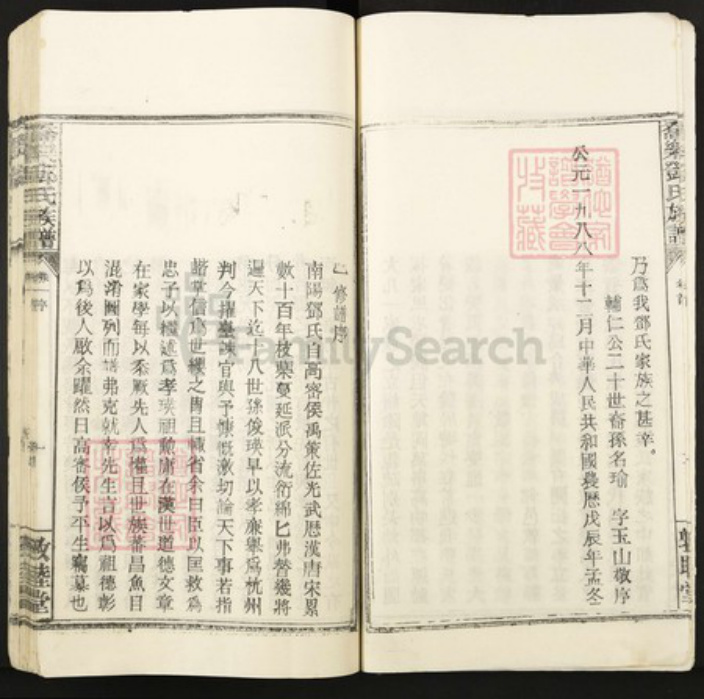 乃爲我鄧氏家族之甚幸。
輔仁公二十世裔孫名瑜 字玉山敬序
公元一九八八年十二月中華人民共和國農歷戊辰年孟冬
鄧氏族譜
修譜序
南陽鄧氏自高密侯禹策佐光武歷漢唐宋累
數十百年枝葉蔓延派分流衍綿匕弗替幾將
遍天下迄十八世孫俊瑛早以孝廉舉爲杭州
判今擢臺諫官與予慷慨激切論天下事若指
諸掌信爲世纓之胄且慽省余曰臣以匡救爲
忠子以繼述爲孝瑛祖勳庸在漢世道德文章
在家學每以忝厥先人爲懼且世族蕃昌魚目
混淆圖列而譜弗克就幸先生言以爲祖德彰
以爲後人啟余躍然曰高密侯予平生竊慕也
氏族譜
敦睦堂
FamilySearch